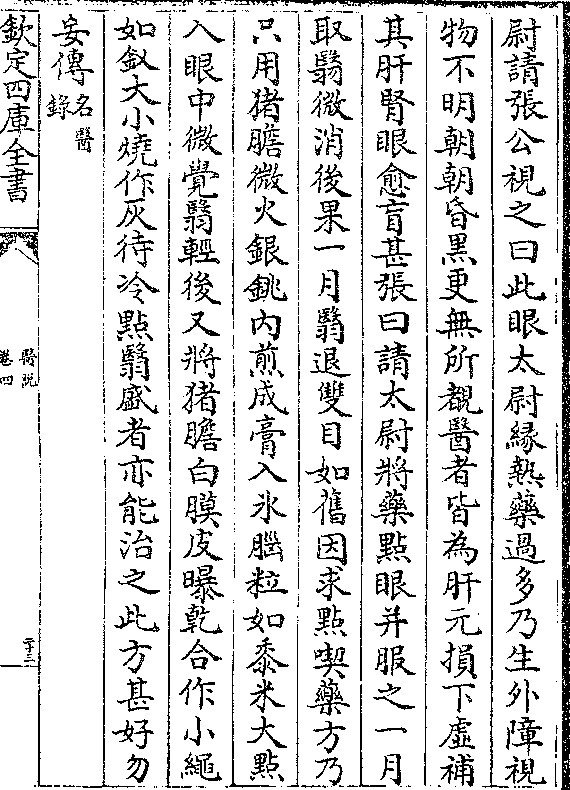 尉請張公視之曰此眼太尉縁熱藥過多乃生外障視
物不明朝朝昏黒更無所覩醫者皆為肝元損下虚補
其肝腎眼愈盲甚張曰請太尉將藥點眼并服之一月
取翳微消後果一月翳退雙目如舊因求點喫藥方乃
只用猪膽微火銀銚内煎成膏入氷腦粒如黍米大點
入眼中微覺翳輕後又將猪膽白膜皮曝乾合作小繩
如釵大小燒作灰待冷點翳盛者亦能治之此方甚好勿
妄傳名醫錄
欽定四庫全書
醫説
卷四
二十三